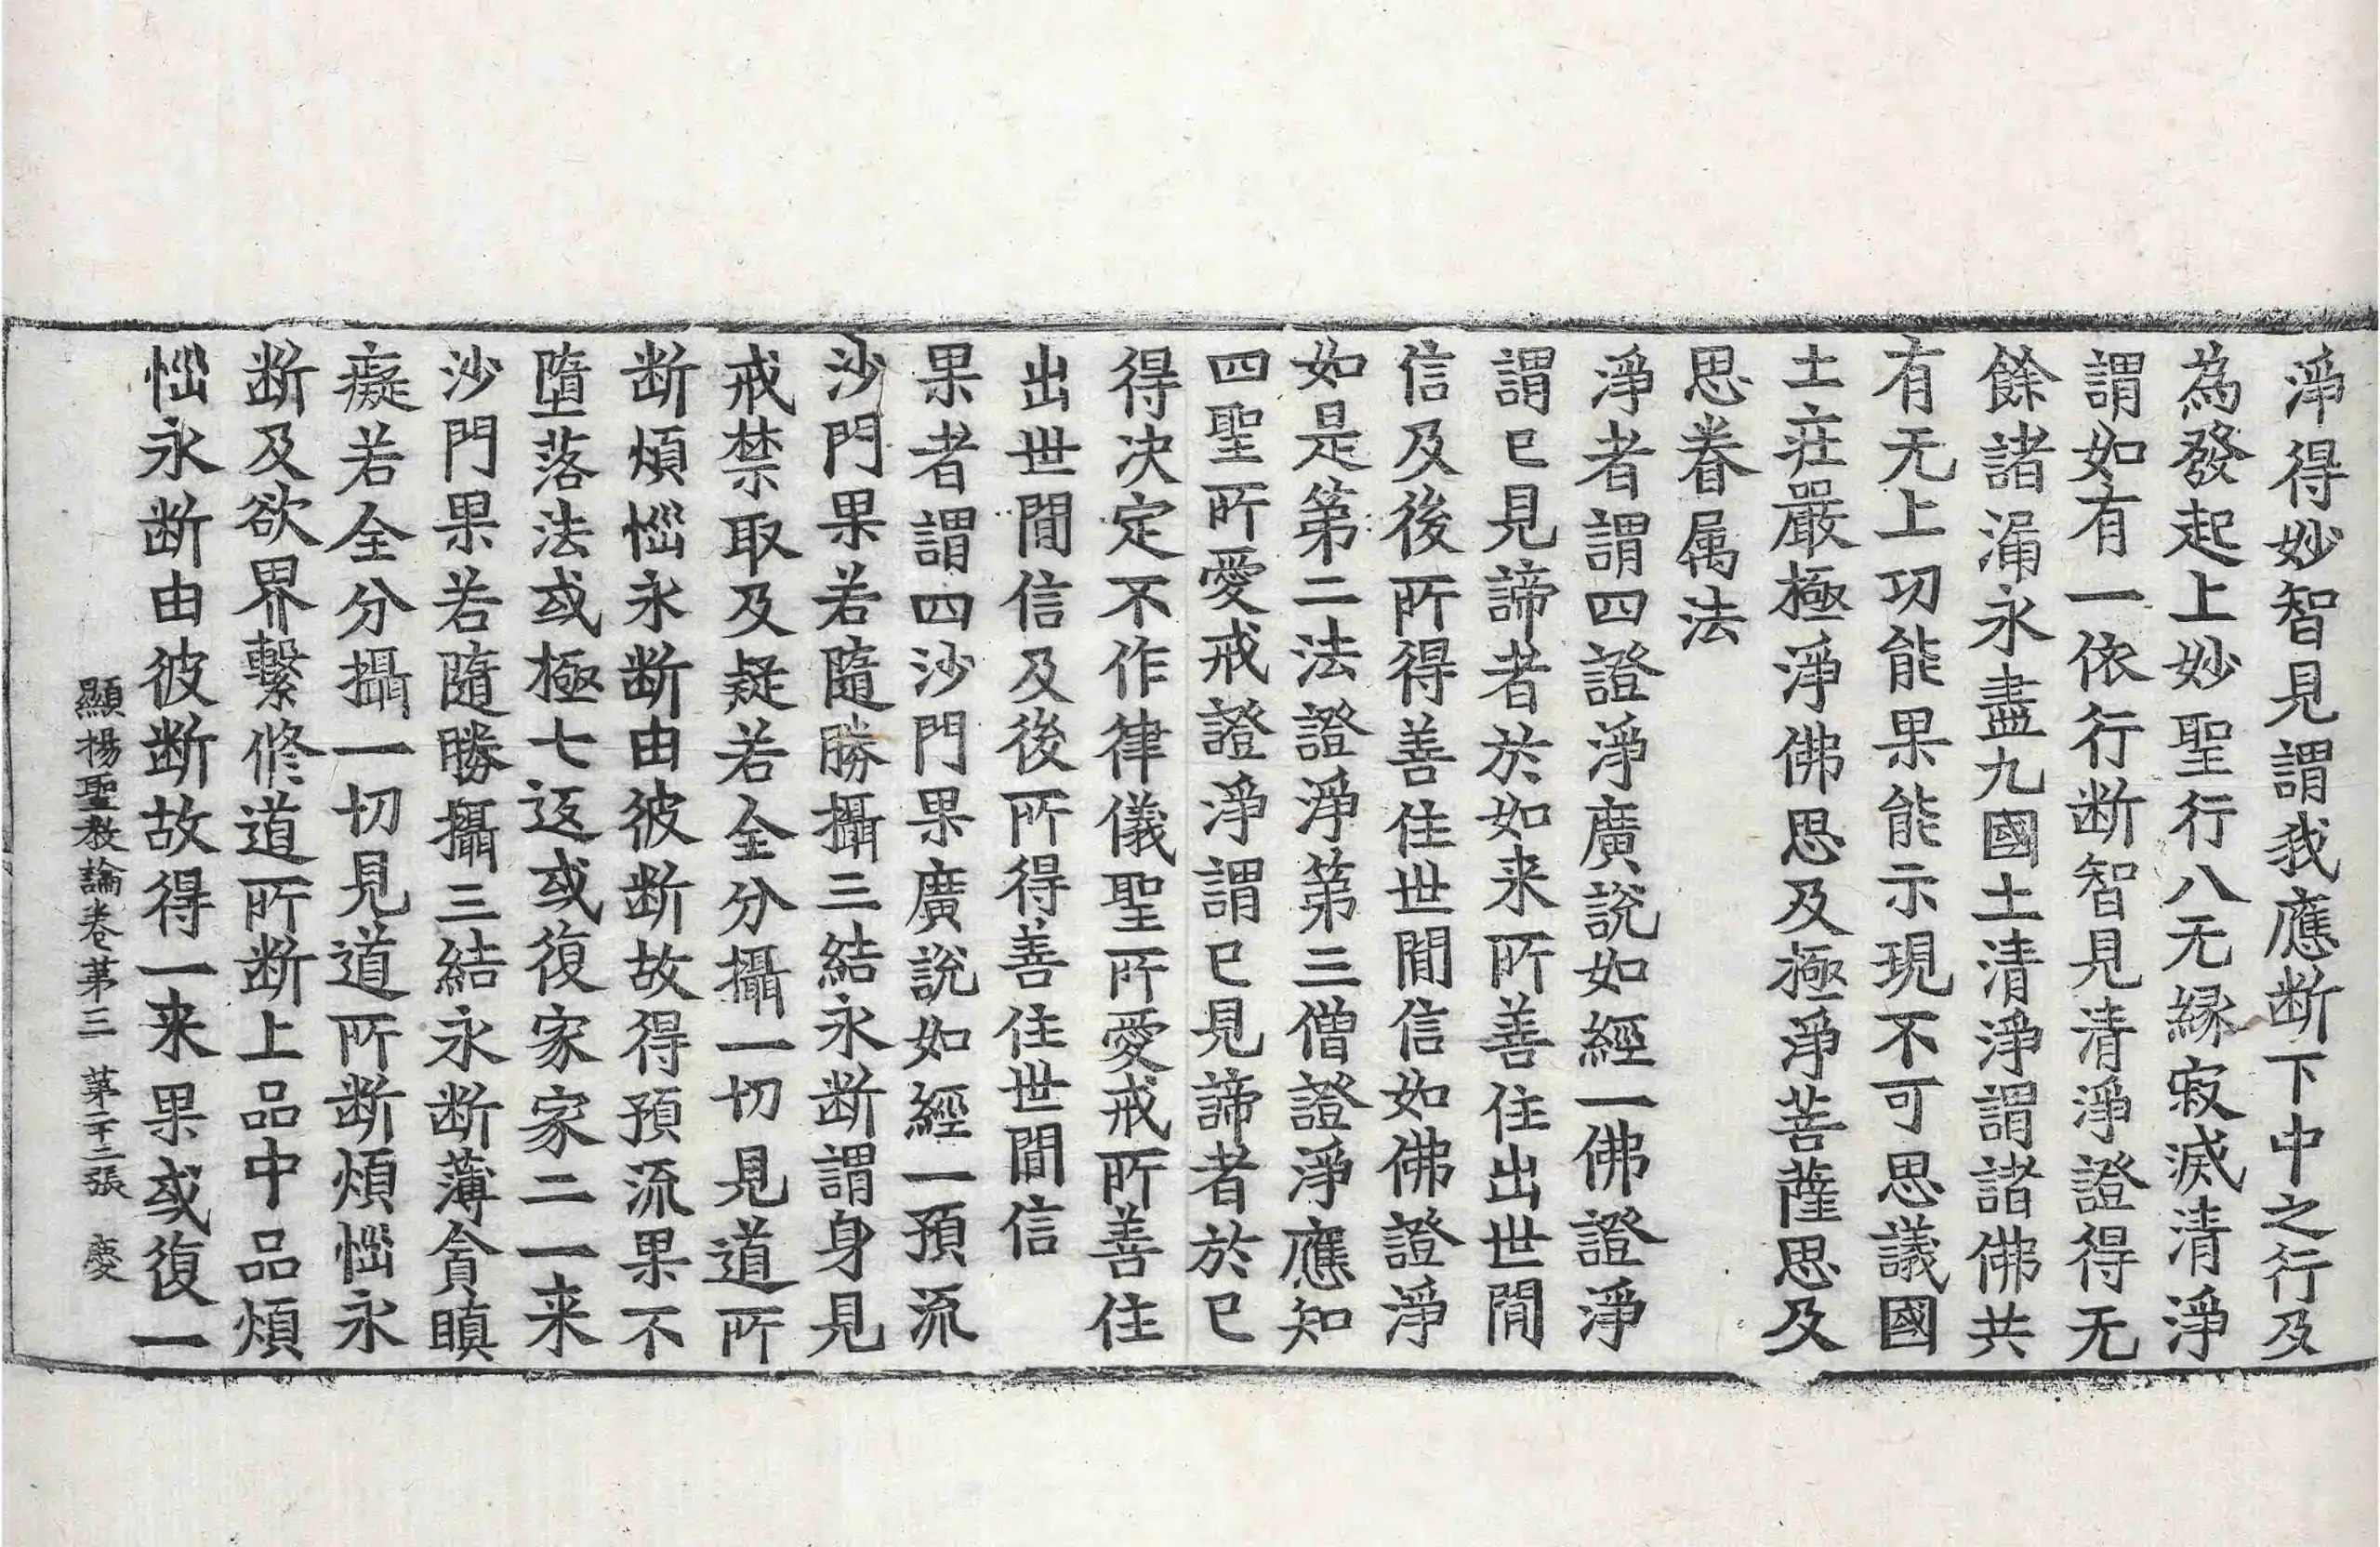 淨得妙智見謂我應断下中之行及
為發起上妙聖行八无縁寂滅清淨
謂如有一依行断智見清淨證得无
餘諸漏永盡九國土清淨謂諸佛共
有无上功能果能示現不可思議國
土莊嚴極淨佛思及極淨菩薩思及
思眷属法
淨者謂四證淨廣說如經一佛證淨
謂已見諦者於如来所善住出世間
信及後所得善住世間信如佛證淨
如是第二法證淨第三僧證淨應知
四聖所愛戒證淨謂已見諦者於已
得决定不作律儀聖所愛戒所善住
出世間信及後所得善住世間信
果者謂四沙門果廣說如經一預流
沙門果若隨勝攝三結永断謂身見
戒禁取及疑若全分攝一切見道所
断煩惱永断由彼断故得預流果不
墮落法或極七返或復家家二一来
沙門果若隨勝攝三結永断薄貪瞋
癡若全分攝一切見道所断煩惱永
断及欲界繫修道所断上品中品煩
惱永断由彼断故得一来果或復一
顯揚聖教論卷第三 第二十二張 慶